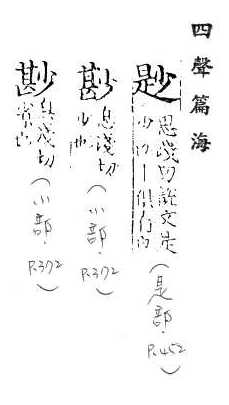 四聲篇海
尟
思淺切說文是
少也 俱存也
(是部.
P.452)
尠
息淺切
少也
(小部.
P.372)
尠
息淺切
(小部.
P.372)